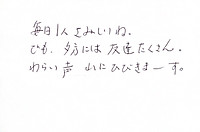 毎日1人さみしいね。
でも、夕方には友達たくさん。
わらい声 山にひびきまーす。